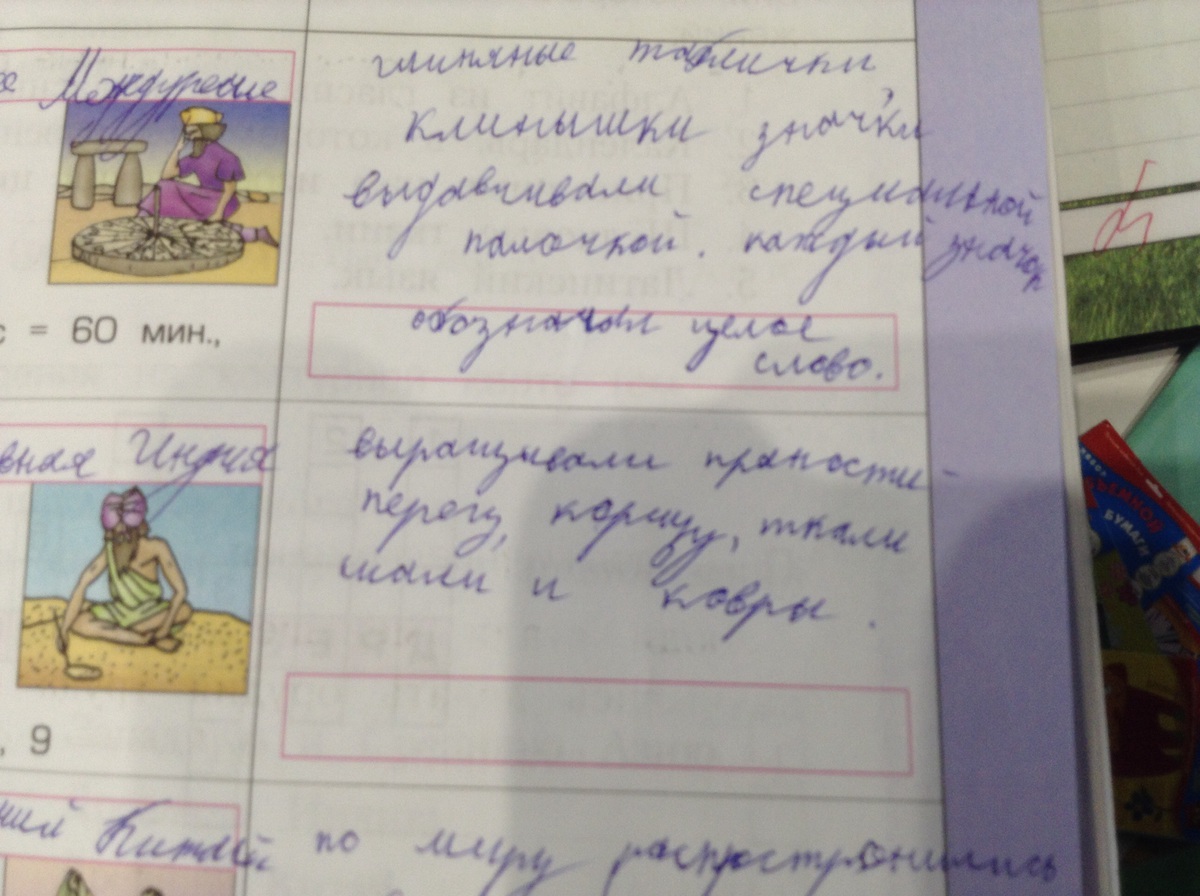 Междуречье
глиняные таблички
клинышки значки
выдавливали специальной
палочкой. каждый значок
с = 60 мин.,
обозначал целое
слово.
вная Индия
выращивали пряности
перец, корицу, ткали
шали и ковры.
, 9
ний Китай
по миру распространились
БУМАГИ